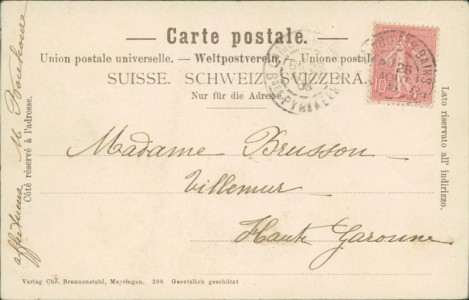 Carte postale.
Union postale universelle. — Weltpostverein. — Unione postale
SUISSE. SCHWEIZ. SVIZZERA.
Nur für die Adresse
Côté réservé à l'adresse.
Lato riservato all' indirizzo.
Madame Brusson
Villemur
Haute Garonne
Verlag Chr. Brennenstuhl, Meyringen. 298 Gesetzlich geschützt